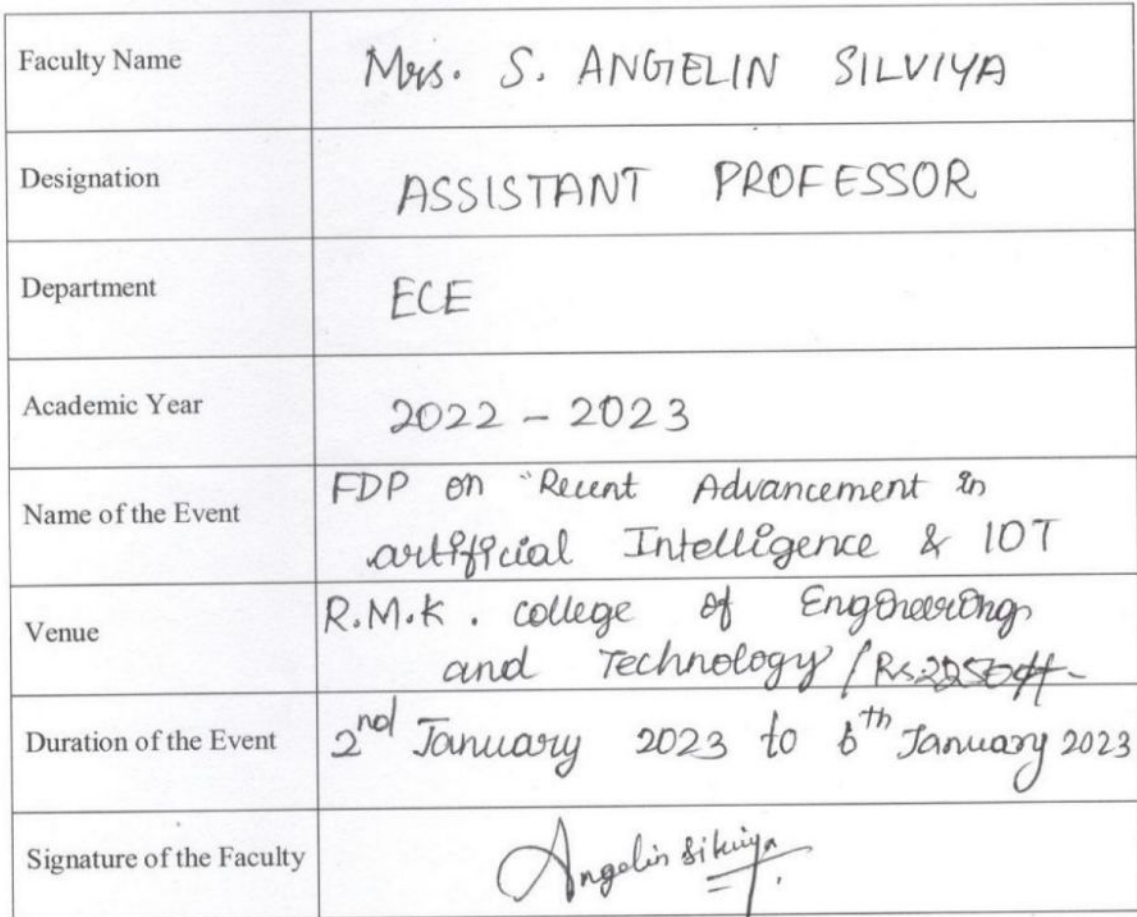 Faculty Name
Mrs. S. ANGELIN SILVIYA
Designation
ASSISTANT PROFESSOR
Department
ECE
Academic Year
2022 - 2023
Name of the Event
FDP on "Recent Advancement in
artificial Intelligence & IOT
Venue
R.M.K. college of Engineering
and Technology /
Duration of the Event
2nd January 2023 to 6th January 2023
Signature of the Faculty
Angelin Silviya